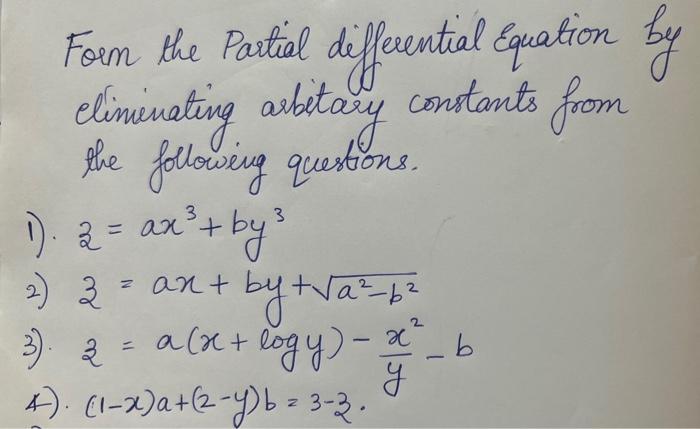 Form the Partial differential Equation by
eliminating arbitary constants from
the following questions.
1). z = ax³ + by³
2) z = ax + by + √a²-b²
3). z = a(x + log y) - x²/y - b
4). (1-x)a + (2-y)b = 3-z.